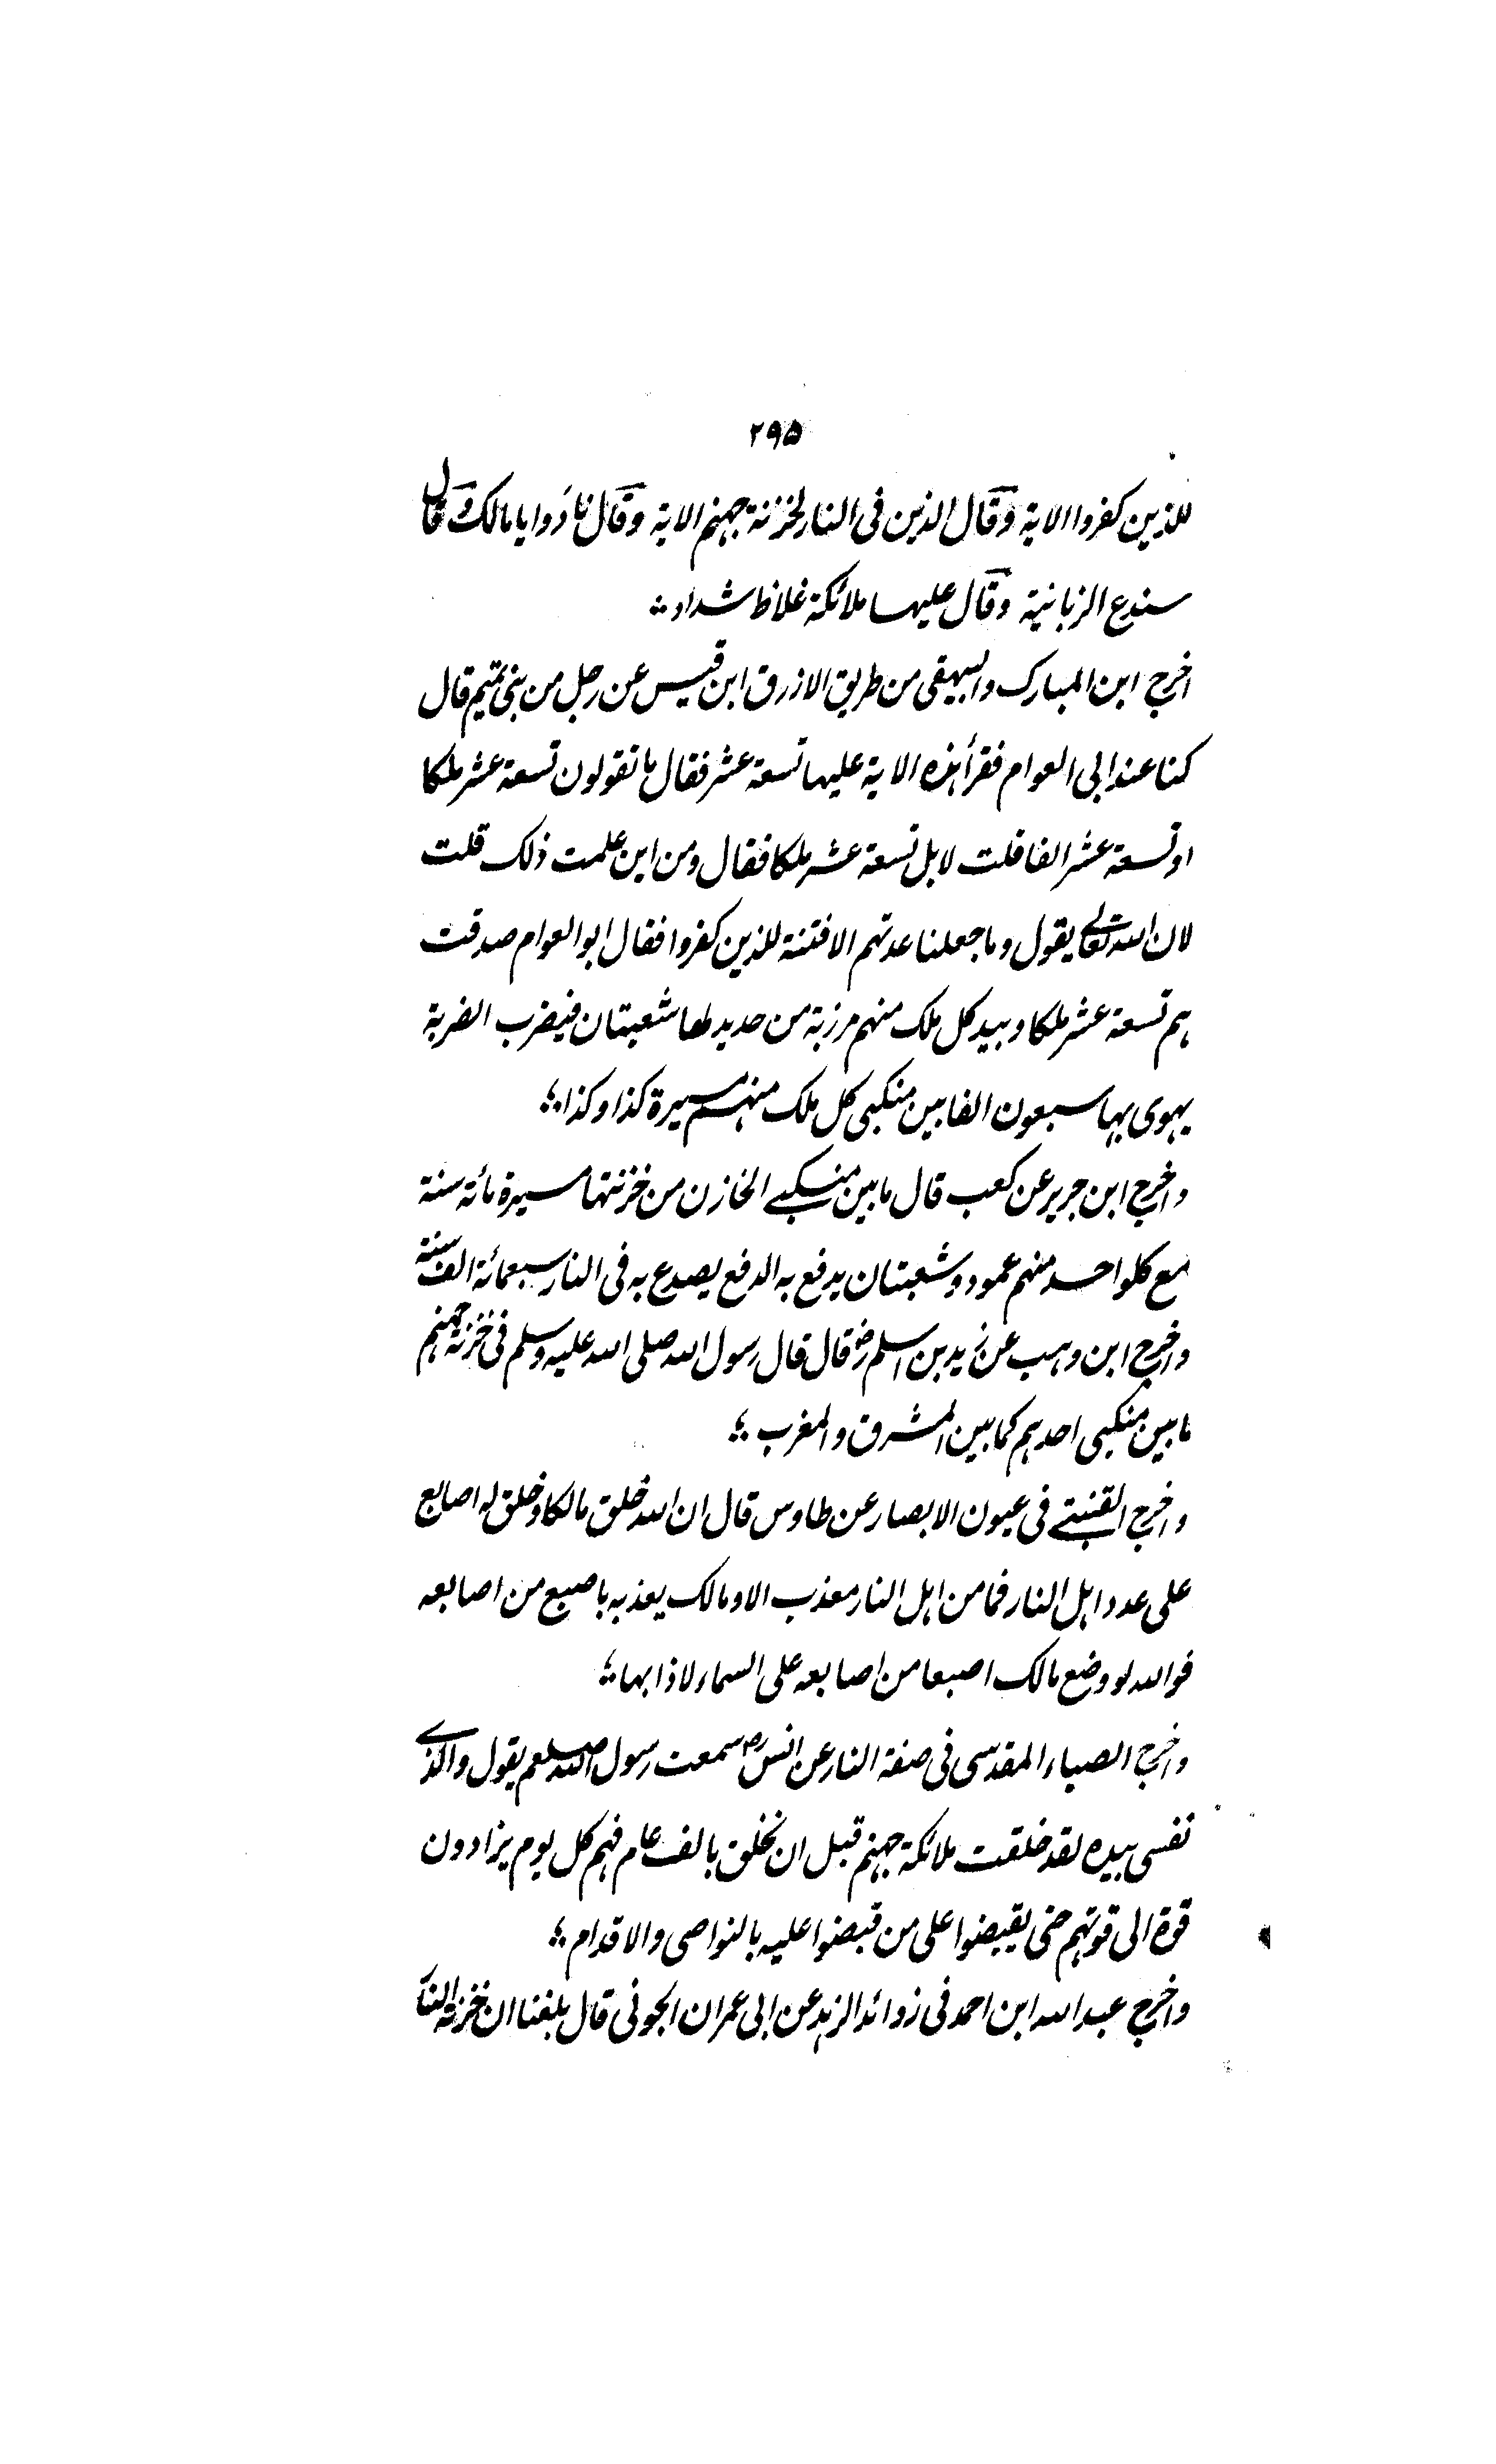 ۲۹۵
للذین کفروا الایة وقال الذین فی النار لخزنة جهنم الایة وقال نادَوا یا مالک وقال
سندع الزبانیة وقال علیها ملائکة غلاظ شداد ؞
اخرج ابن المبارک والبیهقی من طریق الازرق ابن قیس عن رجل من بنی تمیم قال
کنا عند ابی العوام فقرأ هذه الایة علیها تسعة عشر فقال ما تقولون تسعة عشر ملکا
او تسعة عشر الفا قلت لا بل تسعة عشر ملکا فقال ومن این علمت ذلک قلت
لان الله تعالی یقول وما جعلنا عدتهم الا فتنة للذین کفروا فقال ابو العوام صدقت
هم تسعة عشر ملکا وبید کل ملک منهم مرزبة من حدید لها شعبتان فیضرب الضربة
یهوی بها سبعون الفا بین منکبی کل ملک منهم مسیرة کذا وکذا ؞
واخرج ابن جریر عن کعب قال ما بین منکبی الخازن من خزنتها مسیرة مائة سنة
مع کلواحد منهم عمود وشعبتان یدفع به الدفع یصدع به فی النار سبعمائة الف سنة
واخرج ابن وهب عن زید بن اسلم رض قال قال رسول الله صلی الله علیه وسلم فی خزنة جهنم
ما بین منکبی احدهم کما بین المشرق والمغرب ؞
واخرج القتبی فی عیون الابصار عن طاوس قال ان الله خلق مالکا وخلق له اصابع
علی عدد اهل النار فما من اهل النار معذب الا ومالک یعذبه باصبع من اصابعه
فوالله لو وضع مالک اصبعا من اصابعه علی السماء لاذابها ؞
واخرج الضیاء المقدسی فی صفة النار عن انس رض سمعت رسول الله صلعم یقول والذی
نفسی بیده لقد خلقت ملائکة جهنم قبل ان تخلق بالف عام فهم کل یوم یزادون
قوة الی قوتهم حتی یقبضوا علی من قبضوا علیه بالنواصی والاقدام ؞
واخرج عبد الله ابن احمد فی زوائد الزهد عن ابی عمران الجونی قال بلغنا ان خزنة النار